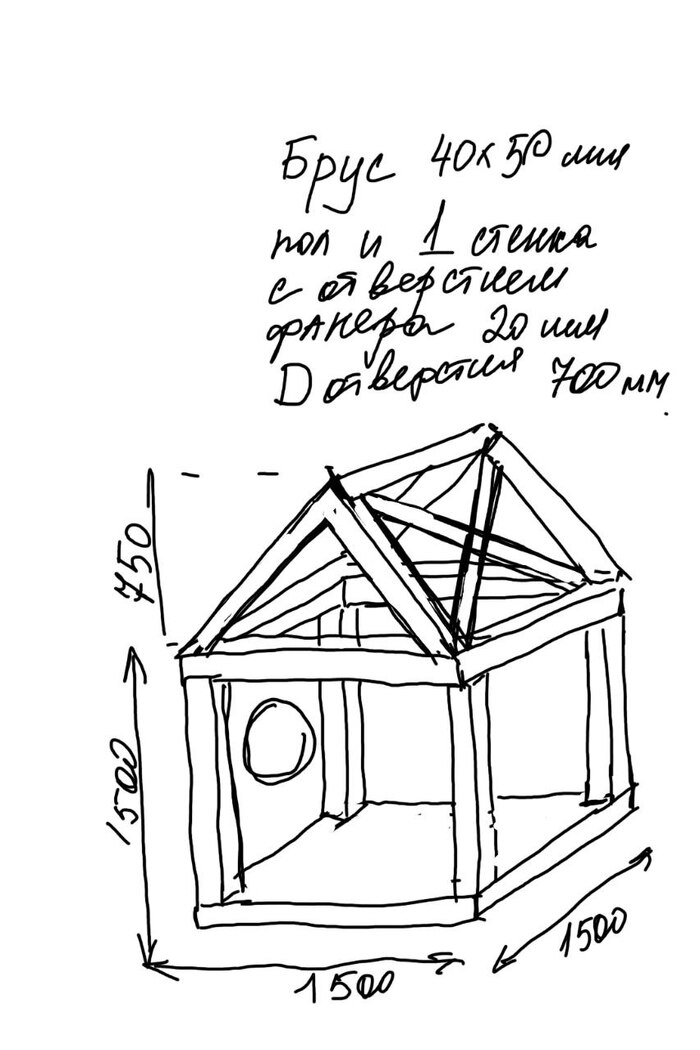 Брус 40х50 мм
пол и 1 стенка
с отверстием
фанера 20 мм
D отверстия 700 мм.
750
1500
1500
1500